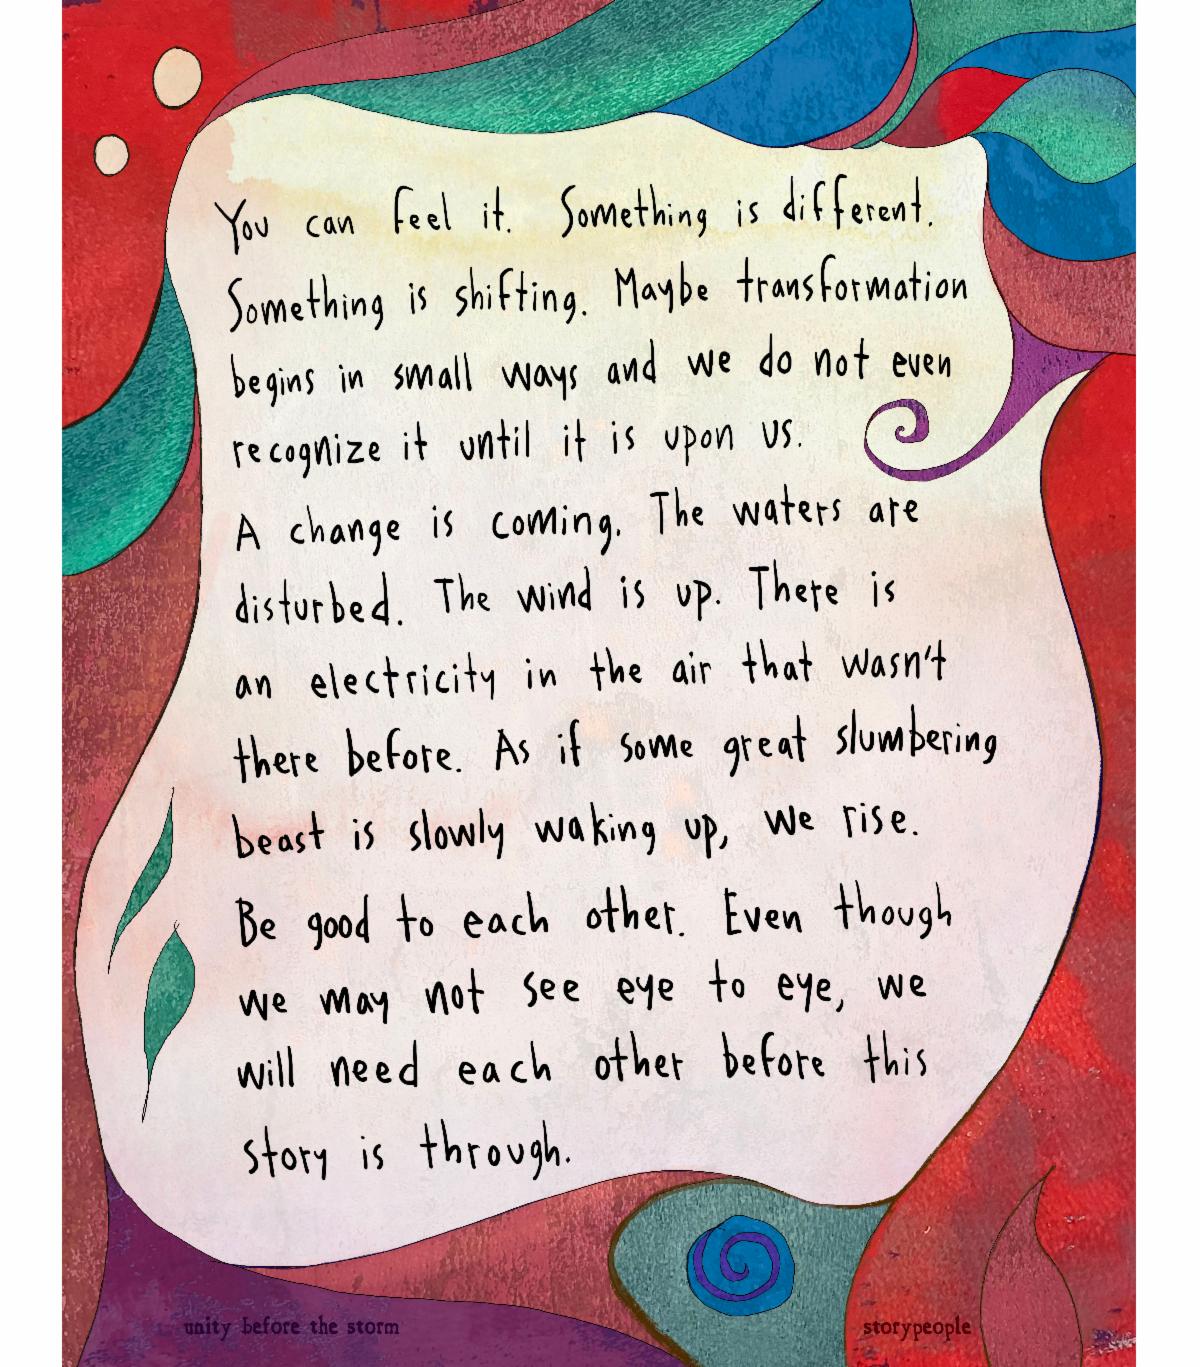 You can feel it. Something is different.
Something is shifting. Maybe transformation
begins in small ways and we do not even
recognize it until it is upon us.
A change is coming. The waters are
disturbed. The wind is up. There is
an electricity in the air that wasn't
there before. As if some great slumbering
beast is slowly waking up, we rise.
Be good to each other. Even though
we may not see eye to eye, we
will need each other before this
story is through.
unity before the storm
storypeople